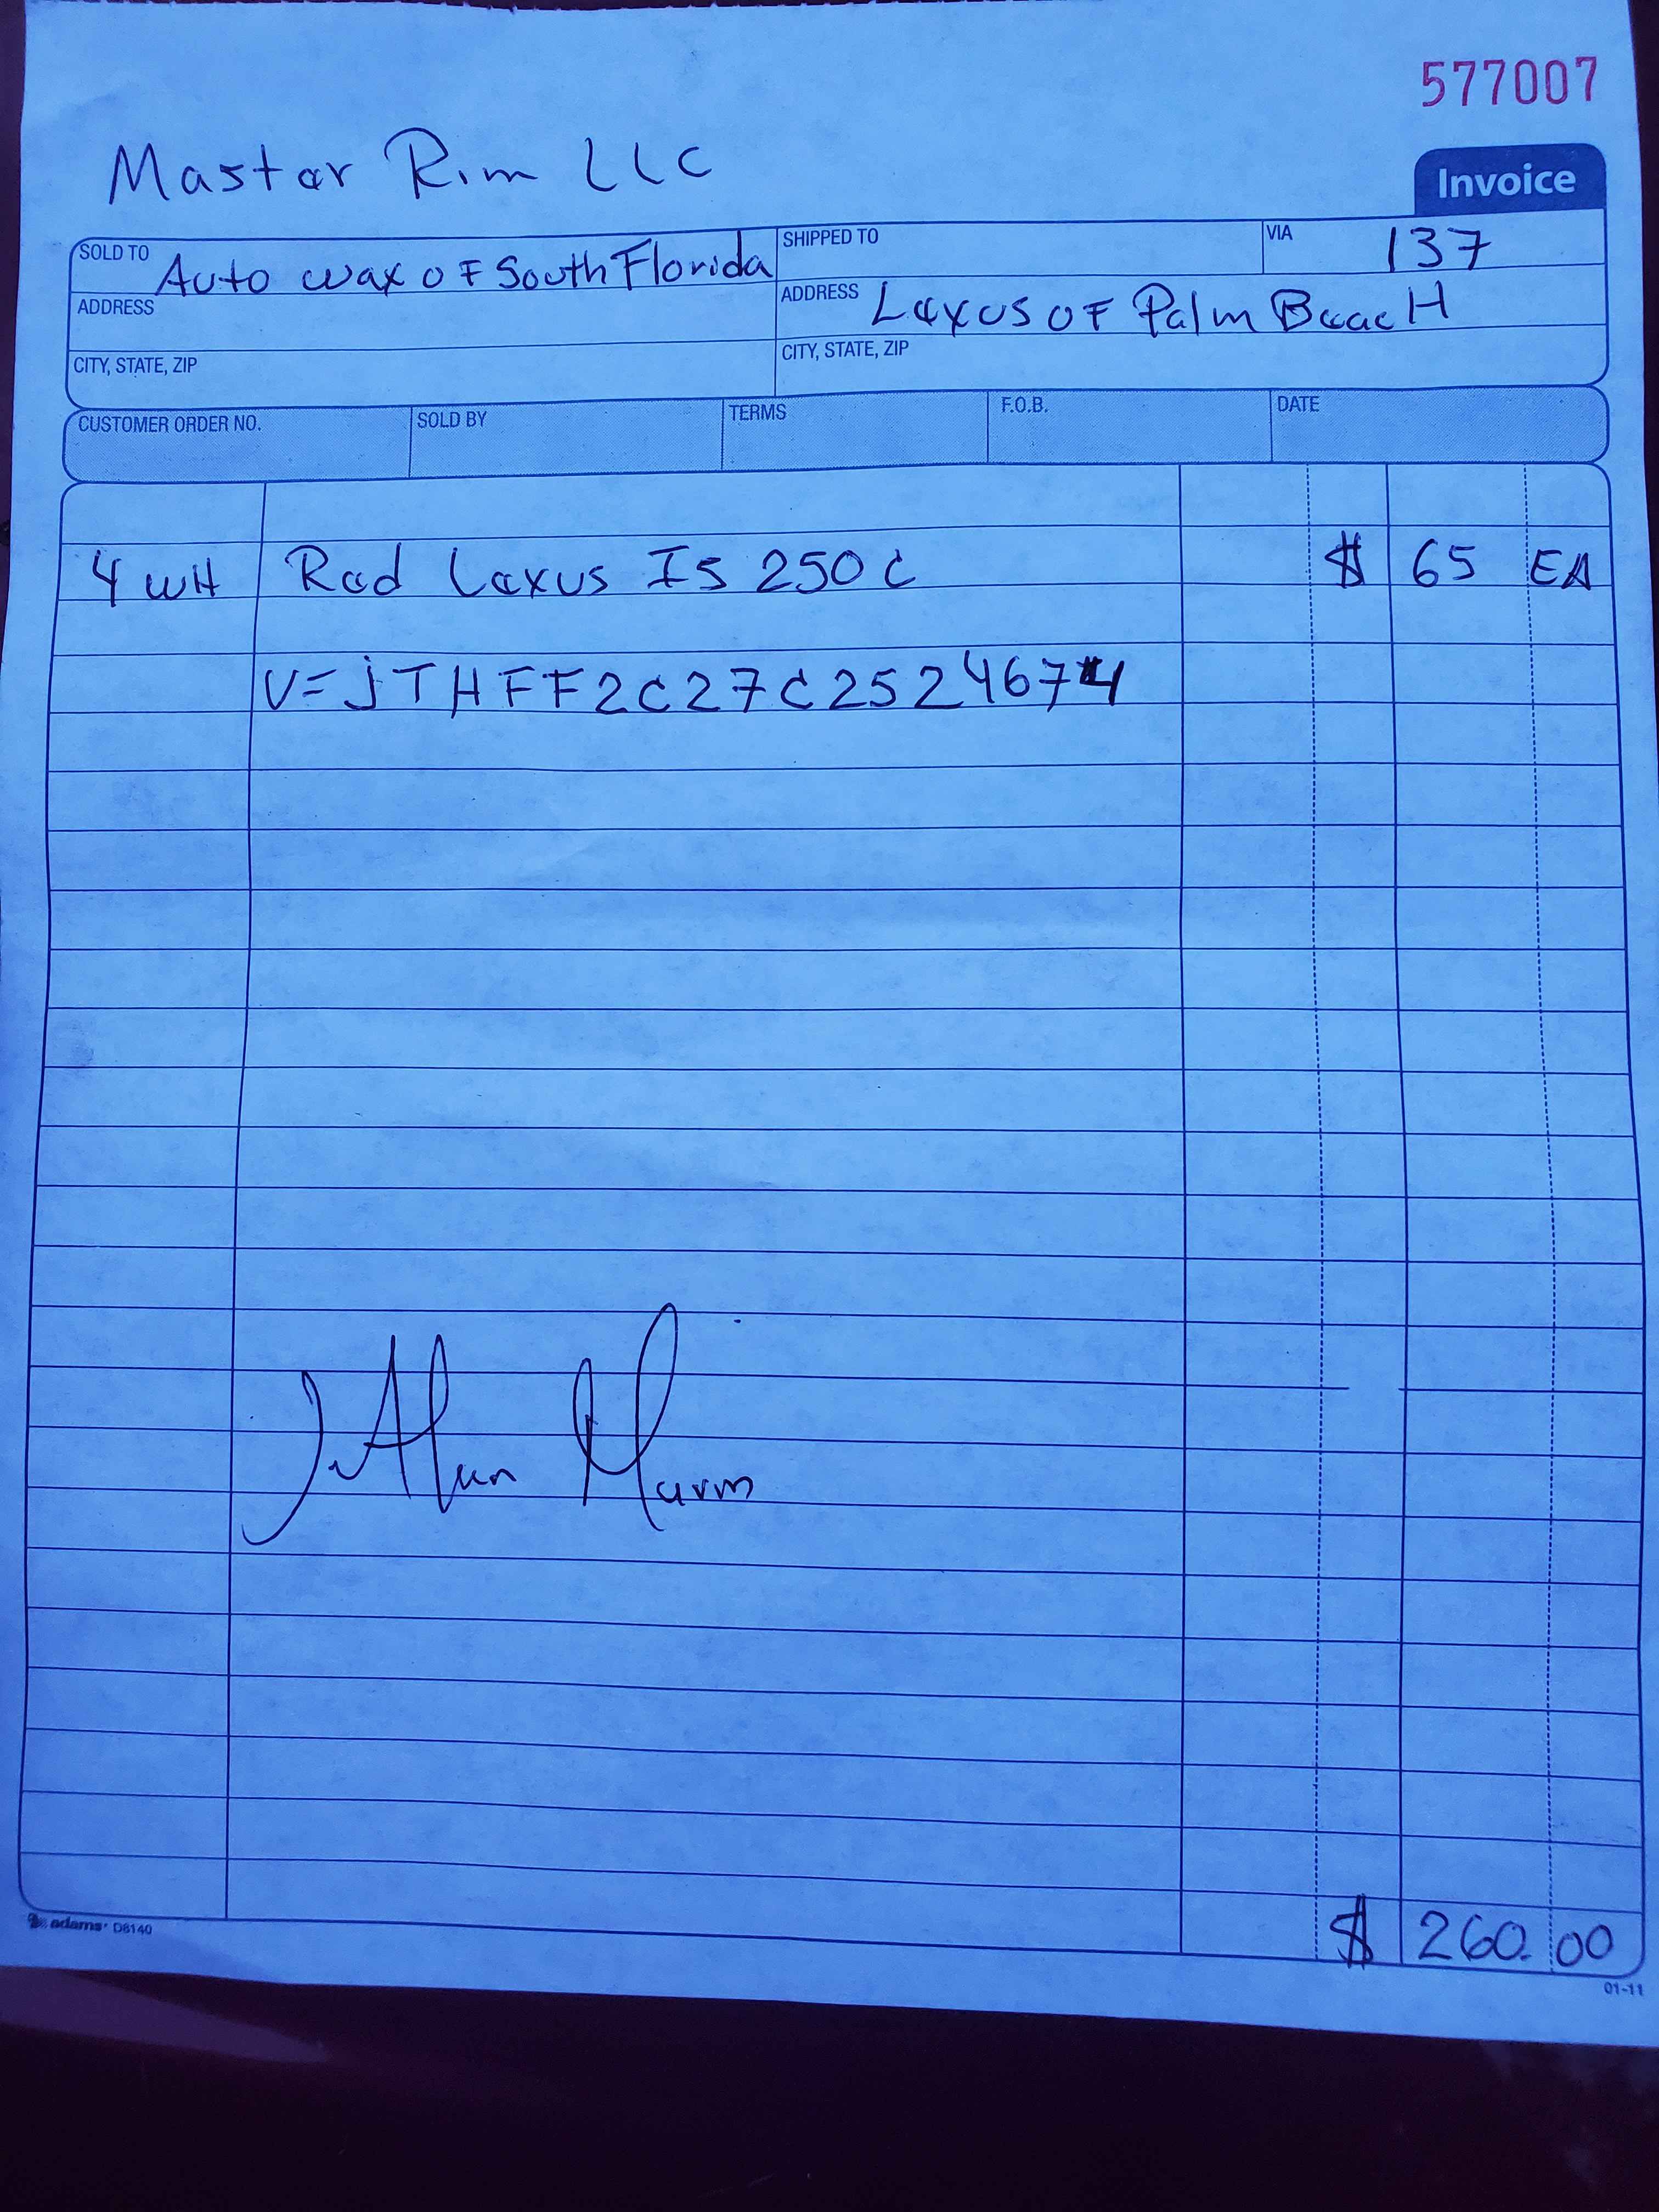 577007
Master Rim LLC
Invoice
SOLD TO Auto wax OF South Florida
SHIPPED TO
VIA 137
ADDRESS
ADDRESS Lexus OF Palm BeacH
CITY, STATE, ZIP
CITY, STATE, ZIP
CUSTOMER ORDER NO. SOLD BY TERMS F.O.B. DATE
4 WH Red Lexus IS 250 C $ 65 EA
V= jTHFF2C27C2524674
$ 260.00
adams D8140
01-11